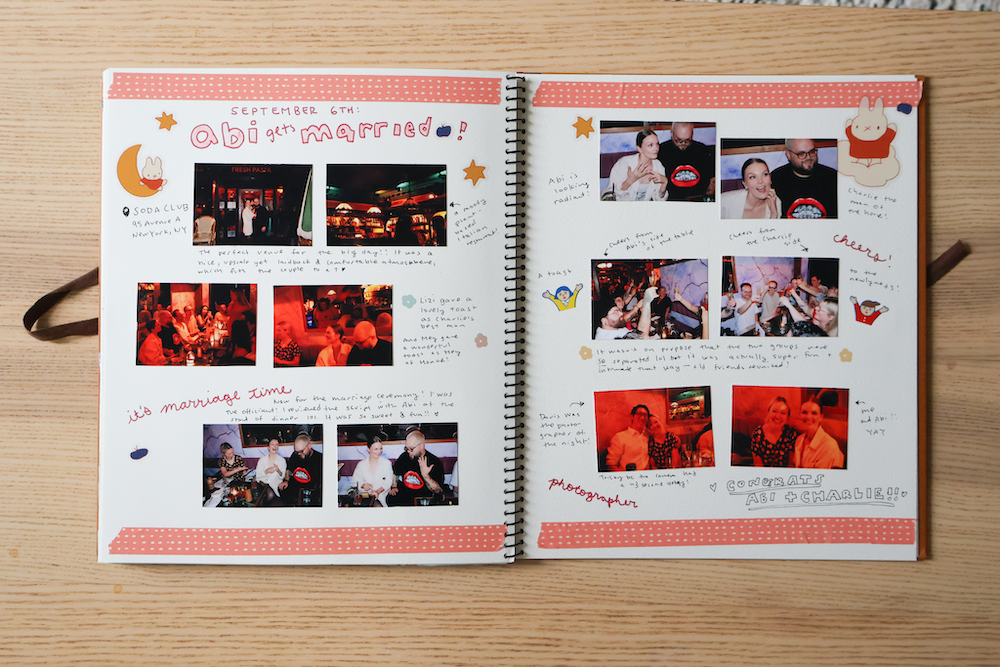 SEPTEMBER 6TH:
abi gets married !
SODA CLUB
95 Avenue A
New York, NY
FRESH PASTA
a moody
plant-
based
italian
restaurant!
The perfect venue for the big day!! It was a
nice, upscale yet laidback & comfortable atmosphere,
which fits the couple to a T ♥
Lizi gave a
lovely toast
as Charlie's
best man
And they gave
a wonderful
toast as they
it's marriage time
Now for the marriage ceremony! I was
the officiant! I reviewed the script with Abi at the
start of dinner lol. It was so sweet & fun!!
Abi is
looking
radiant
Charlie the
man of
the hour!
Cheers from
Abi's side
of the table
Cheers from
the Charlie
side
cheers!
A toast
to the
newlyweds!
It wasn't on purpose that the two groups were
so separated lol but it was actually super fun +
intimate that way — old friends reunited!
was
the photo
grapher of
the night!
me
and Abi!!
YAY
photographer
CONGRATS
ABI + CHARLIE!!